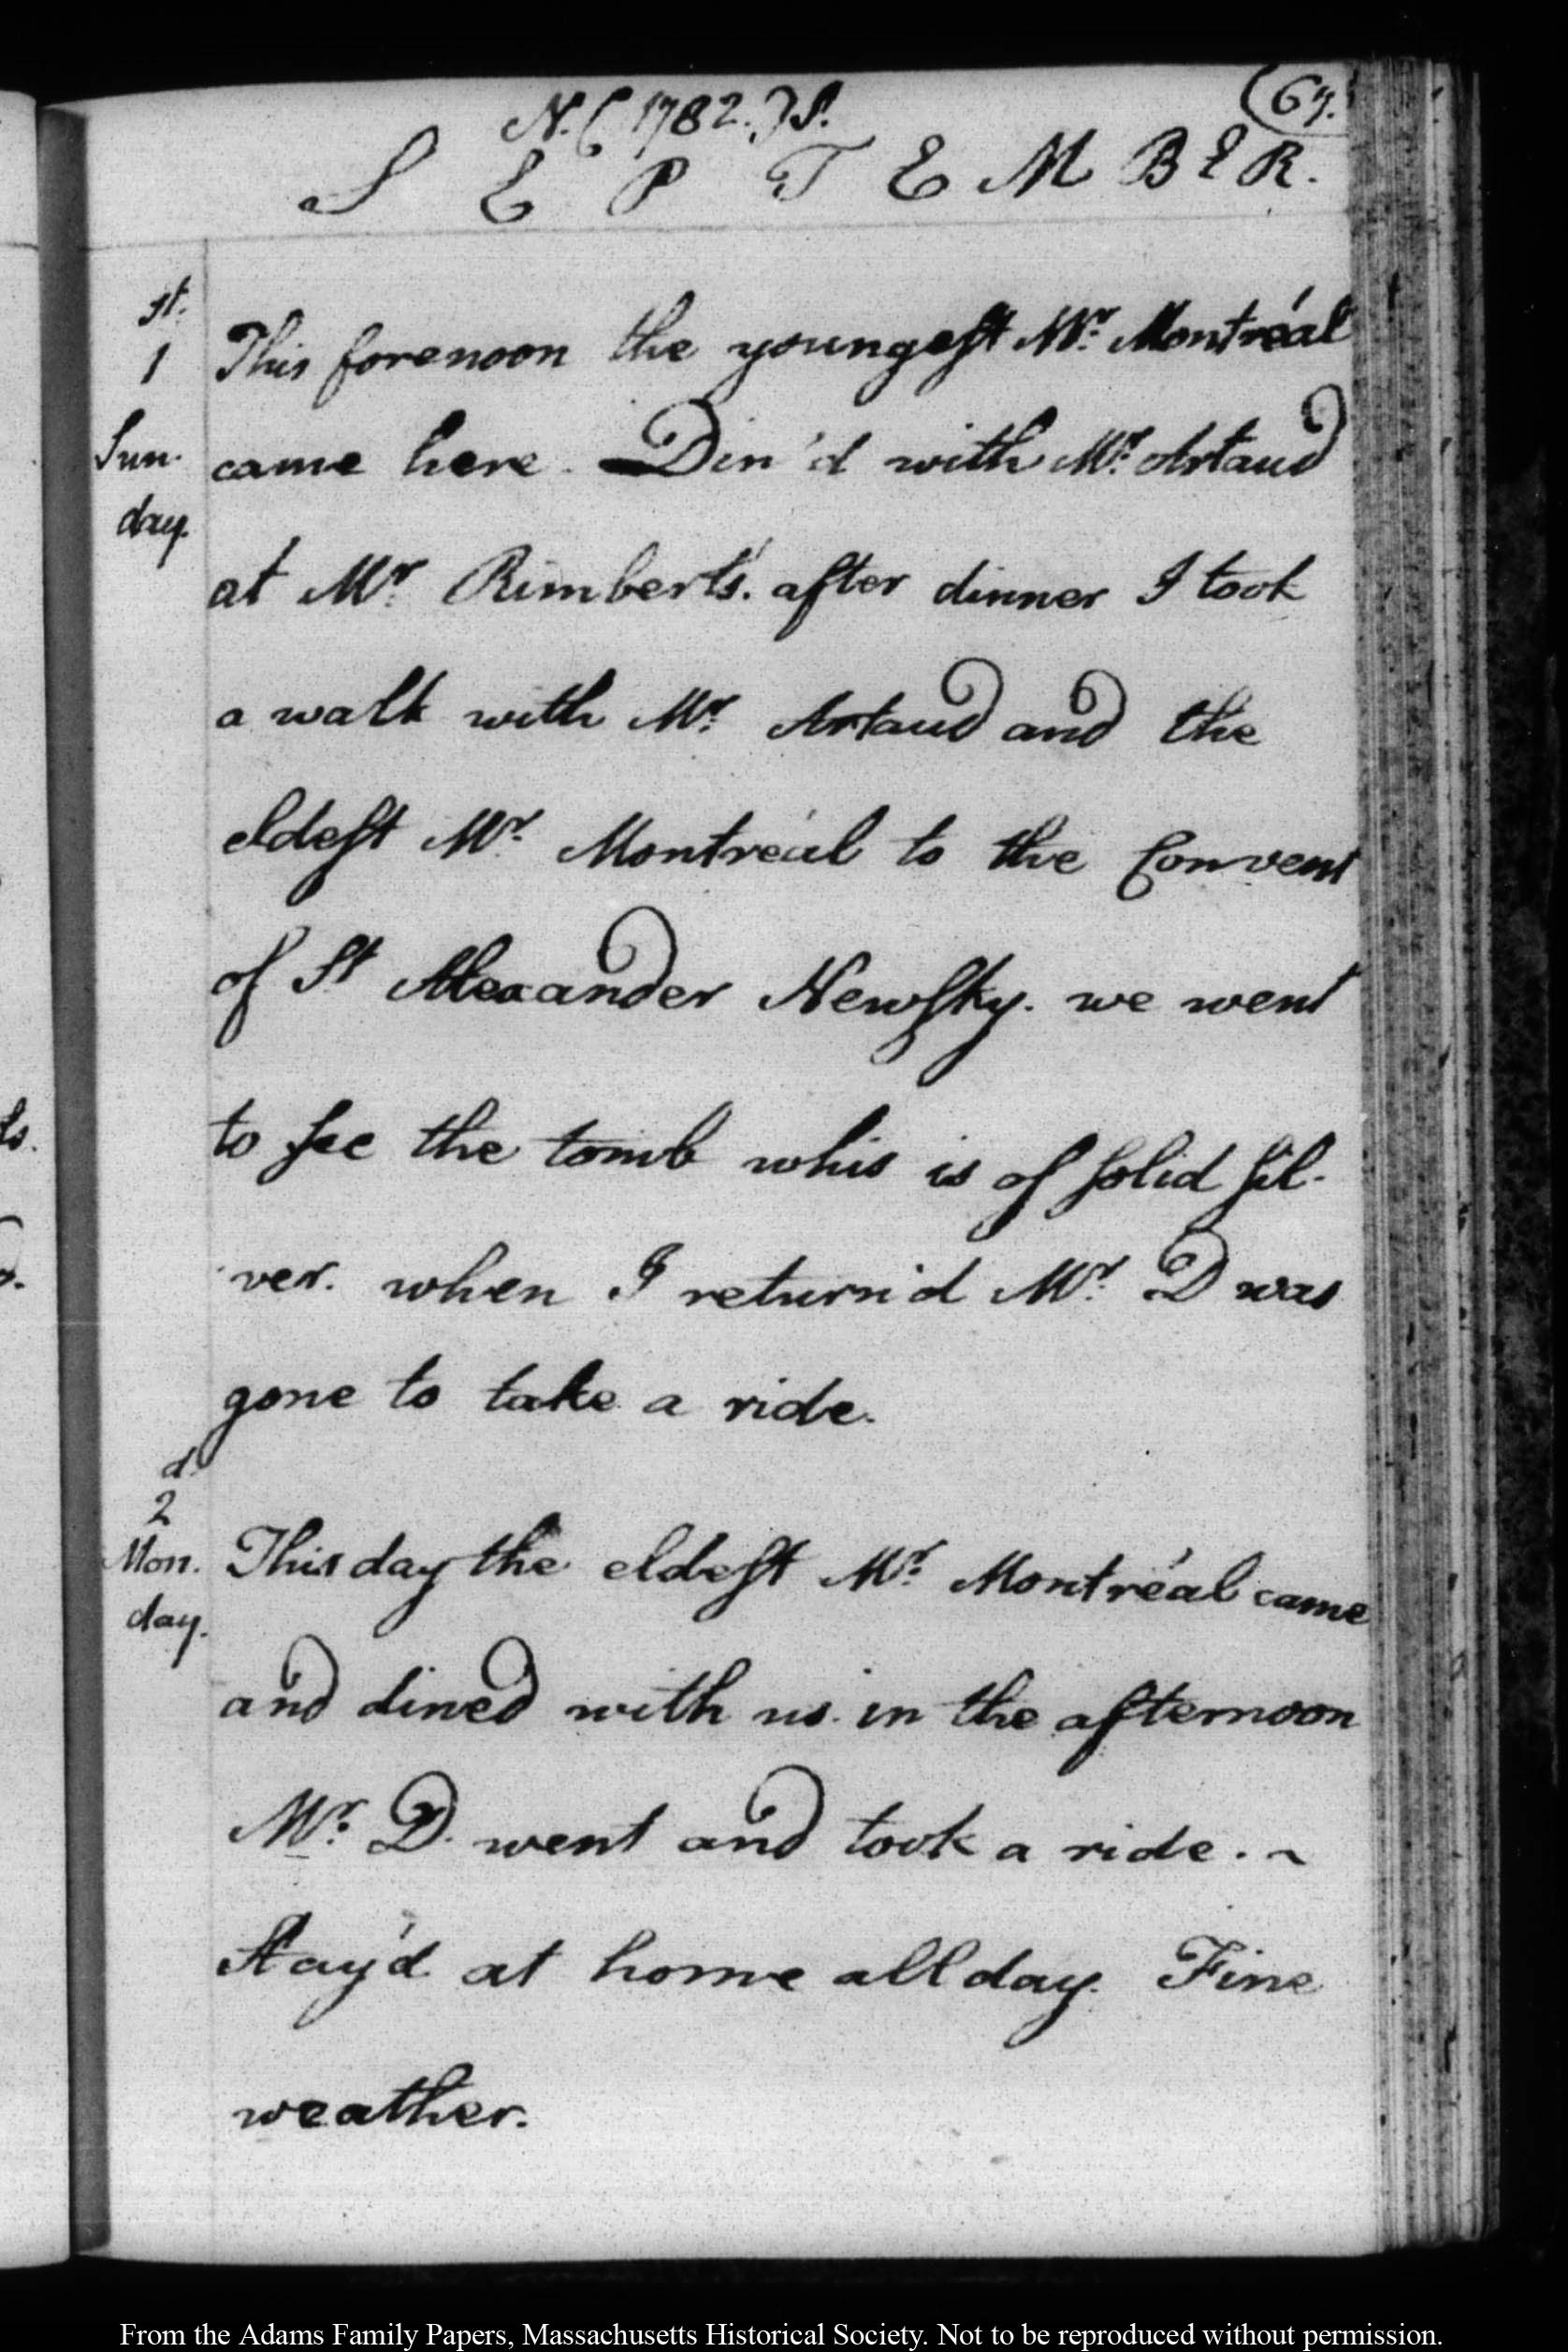 N. ( 1782. ) S.
(67.
S E P T E M B E R.
st.
1
Sun.
day.
This forenoon the youngest Mr. Montréal
came here. Din'd with Mr. Artaud
at Mr. Rimbert's. after dinner I took
a walk with Mr. Artaud and the
eldest Mr. Montréal to the Convent
of St Alexander Newsky. we went
to see the tomb whis is of solid sil-
ver. when I return'd Mr. D was
gone to take a ride.
d.
2
Mon.
day.
This day the eldest Mr. Montréal came
and dined with us. in the afternoon
Mr. D. went and took a ride. ~
Stay'd at home all day. Fine
weather.
ts.
From the Adams Family Papers, Massachusetts Historical Society. Not to be reproduced without permission.